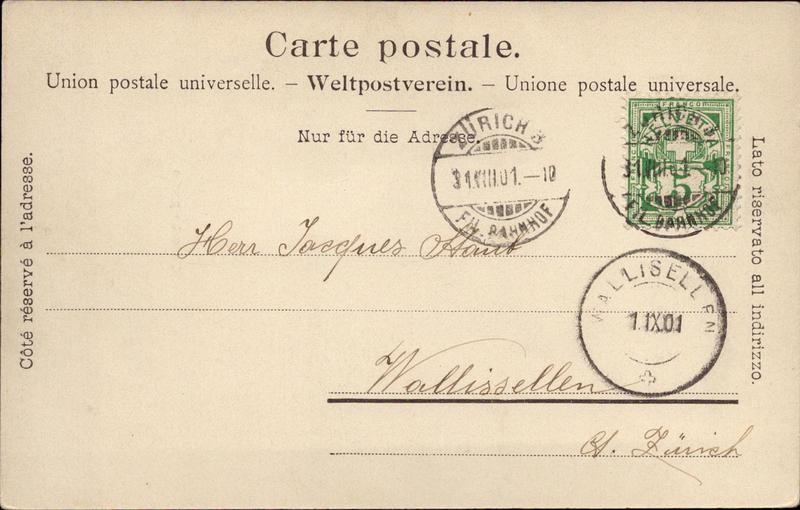 Carte postale.
Union postale universelle. – Weltpostverein. – Unione postale universale.
Nur für die Adresse.
Côté réservé à l'adresse.
Lato riservato all indirizzo.
ZÜRICH
31.VIII.01.–10
FIL. BAHNHOF
FRANCO
HELVETIA
5
31.VIII.01. 10
FIL. BAHNHOF
Herr Jacques
WALLISELLEN
1.IX.01
Wallissellen
Ct. Zürich